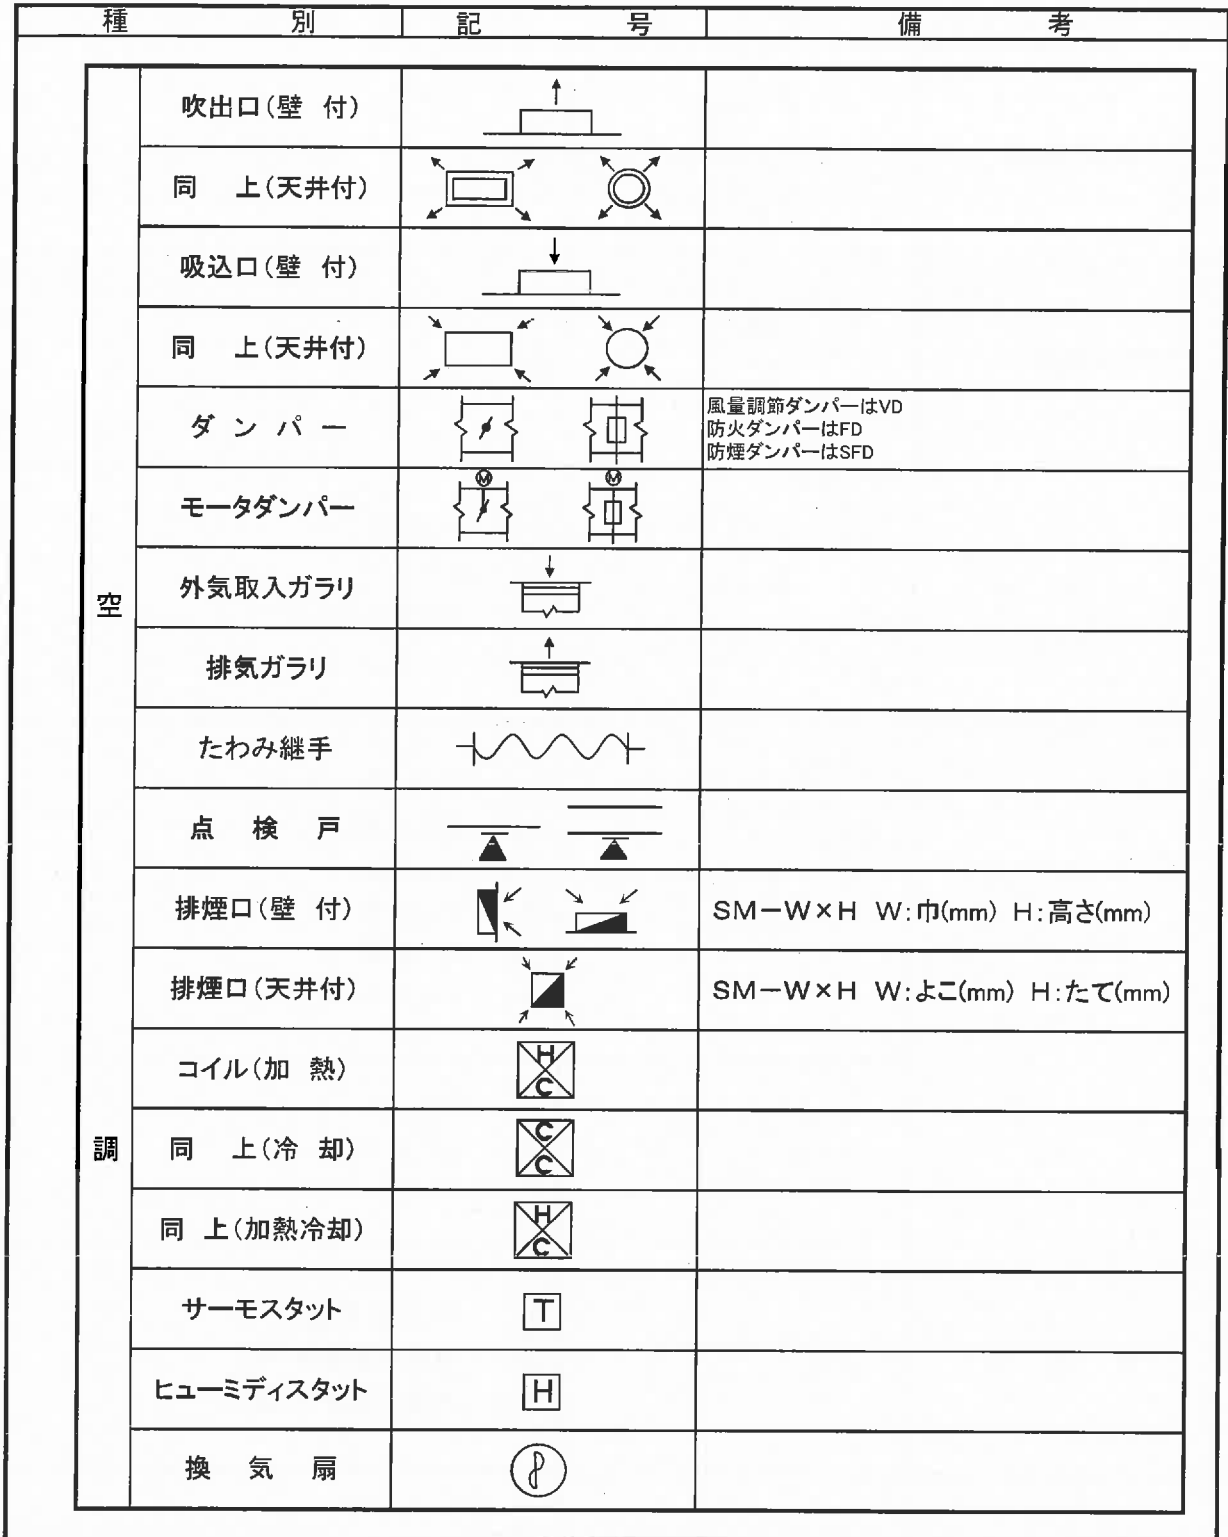 種 別 記 号 備 考
吹出口(壁 付)
同 上(天井付)
吸込口(壁 付)
同 上(天井付)
ダ ン パ ー
風量調節ダンパーはVD
防火ダンパーはFD
防煙ダンパーはSFD
モータダンパー
M M
外気取入ガラリ
排気ガラリ
たわみ継手
点 検 戸
排煙口(壁 付) SM-W×H W:巾(mm) H:高さ(mm)
排煙口(天井付) SM-W×H W:よこ(mm) H:たて(mm)
コイル(加 熱)
H
C
同 上(冷 却)
C
C
同 上(加熱冷却)
H
C
サーモスタット T
ヒューミディスタット H
換 気 扇
空
調